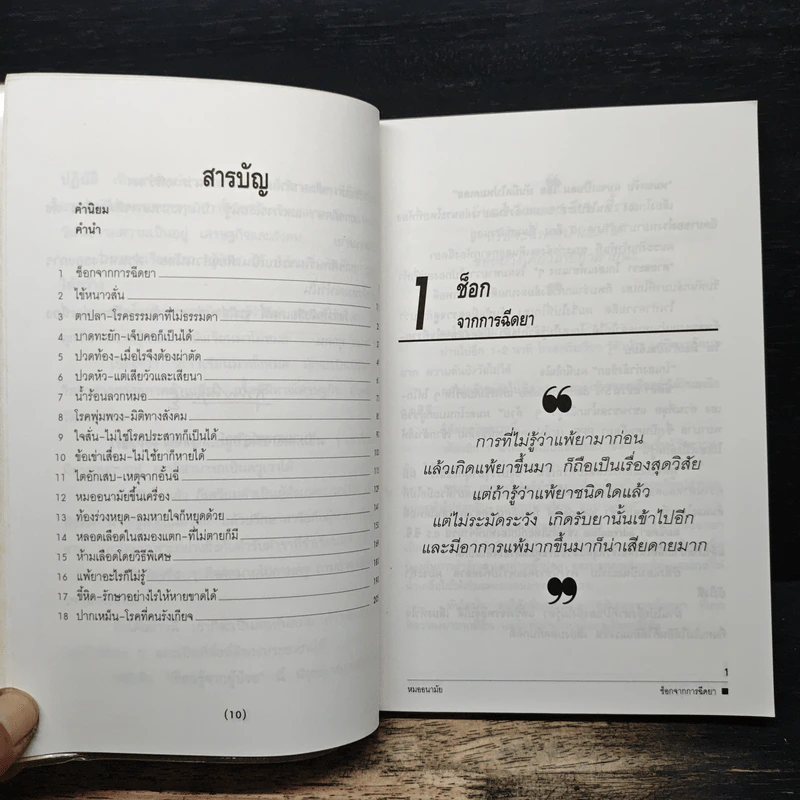 สารบัญ
คำนิยม
คำนำ
1 ช็อกจากการฉีดยา
2 ไข้หนาวสั่น
3 ตาปลา-โรคธรรมดาที่ไม่ธรรมดา
4 บาดทะยัก-เจ็บคอก็เป็นได้
5 ปวดท้อง-เมื่อไรจึงต้องผ่าตัด
6 ปวดหัว-แต่เสียวัวและเสียนา
7 น้ำร้อนลวกหมอ
8 โรคพุ่มพวง-มิติทางสังคม
9 ใจสั่น-ไม่ใช่โรคประสาทก็เป็นได้
10 ข้อเข่าเสื่อม-ไม่ใช้ยาก็หายได้
11 ไตอักเสบ-เหตุจากอั้นฉี่
12 หมออนามัยขึ้นเครื่อง
13 ท้องร่วงหยุด-ลมหายใจก็หยุดด้วย
14 หลอดเลือดในสมองแตก-ที่ไม่ตายก็มี
15 ห้ามเลือดโดยวิธีพิเศษ
16 แพ้ยาอะไรก็ไม่รู้
17 ขี้หิด-รักษาอย่างไรให้หายขาดได้
18 ปากเหม็น-โรคที่คนรังเกียจ
(10)
1 ช็อก
จากการฉีดยา
“
การที่ไม่รู้ว่าแพ้ยามาก่อน
แล้วเกิดแพ้ยาขึ้นมา ก็ถือเป็นเรื่องสุดวิสัย
แต่ถ้ารู้ว่าแพ้ยาชนิดใดแล้ว
แต่ไม่ระมัดระวัง เกิดรับยานั้นเข้าไปอีก
และมีอาการแพ้มากขึ้นมาก็น่าเสียดายมาก
”
1
หมออนามัย ช็อกจากการฉีดยา